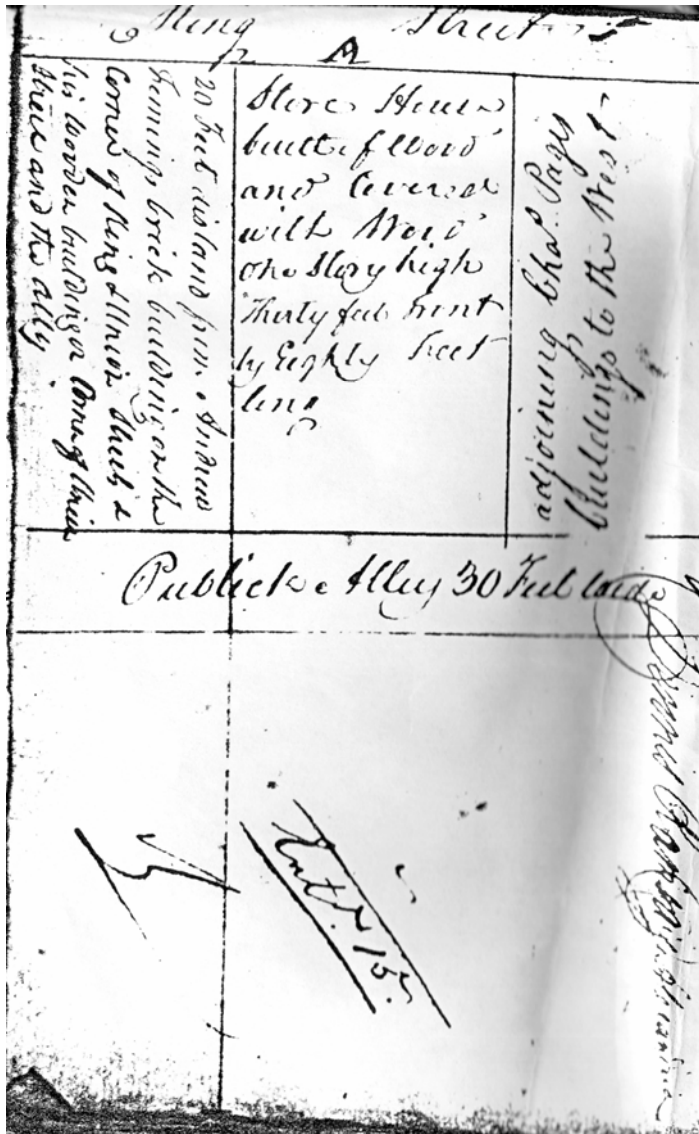 King Street
A
20 Feet distand from Andrew
Jemings brick building on the
Corner of King & Union Streets &
his wooden building a Corner of Union
Street and the ally
Store House
built of Wood
and Covered
with Wood
one Story high
Thirty feet front
by Eighty Feet
long
adjoining Chas. Pages
buildings to the West
Publick Alley 30 Feet wide
Dennis
Entd. 15.